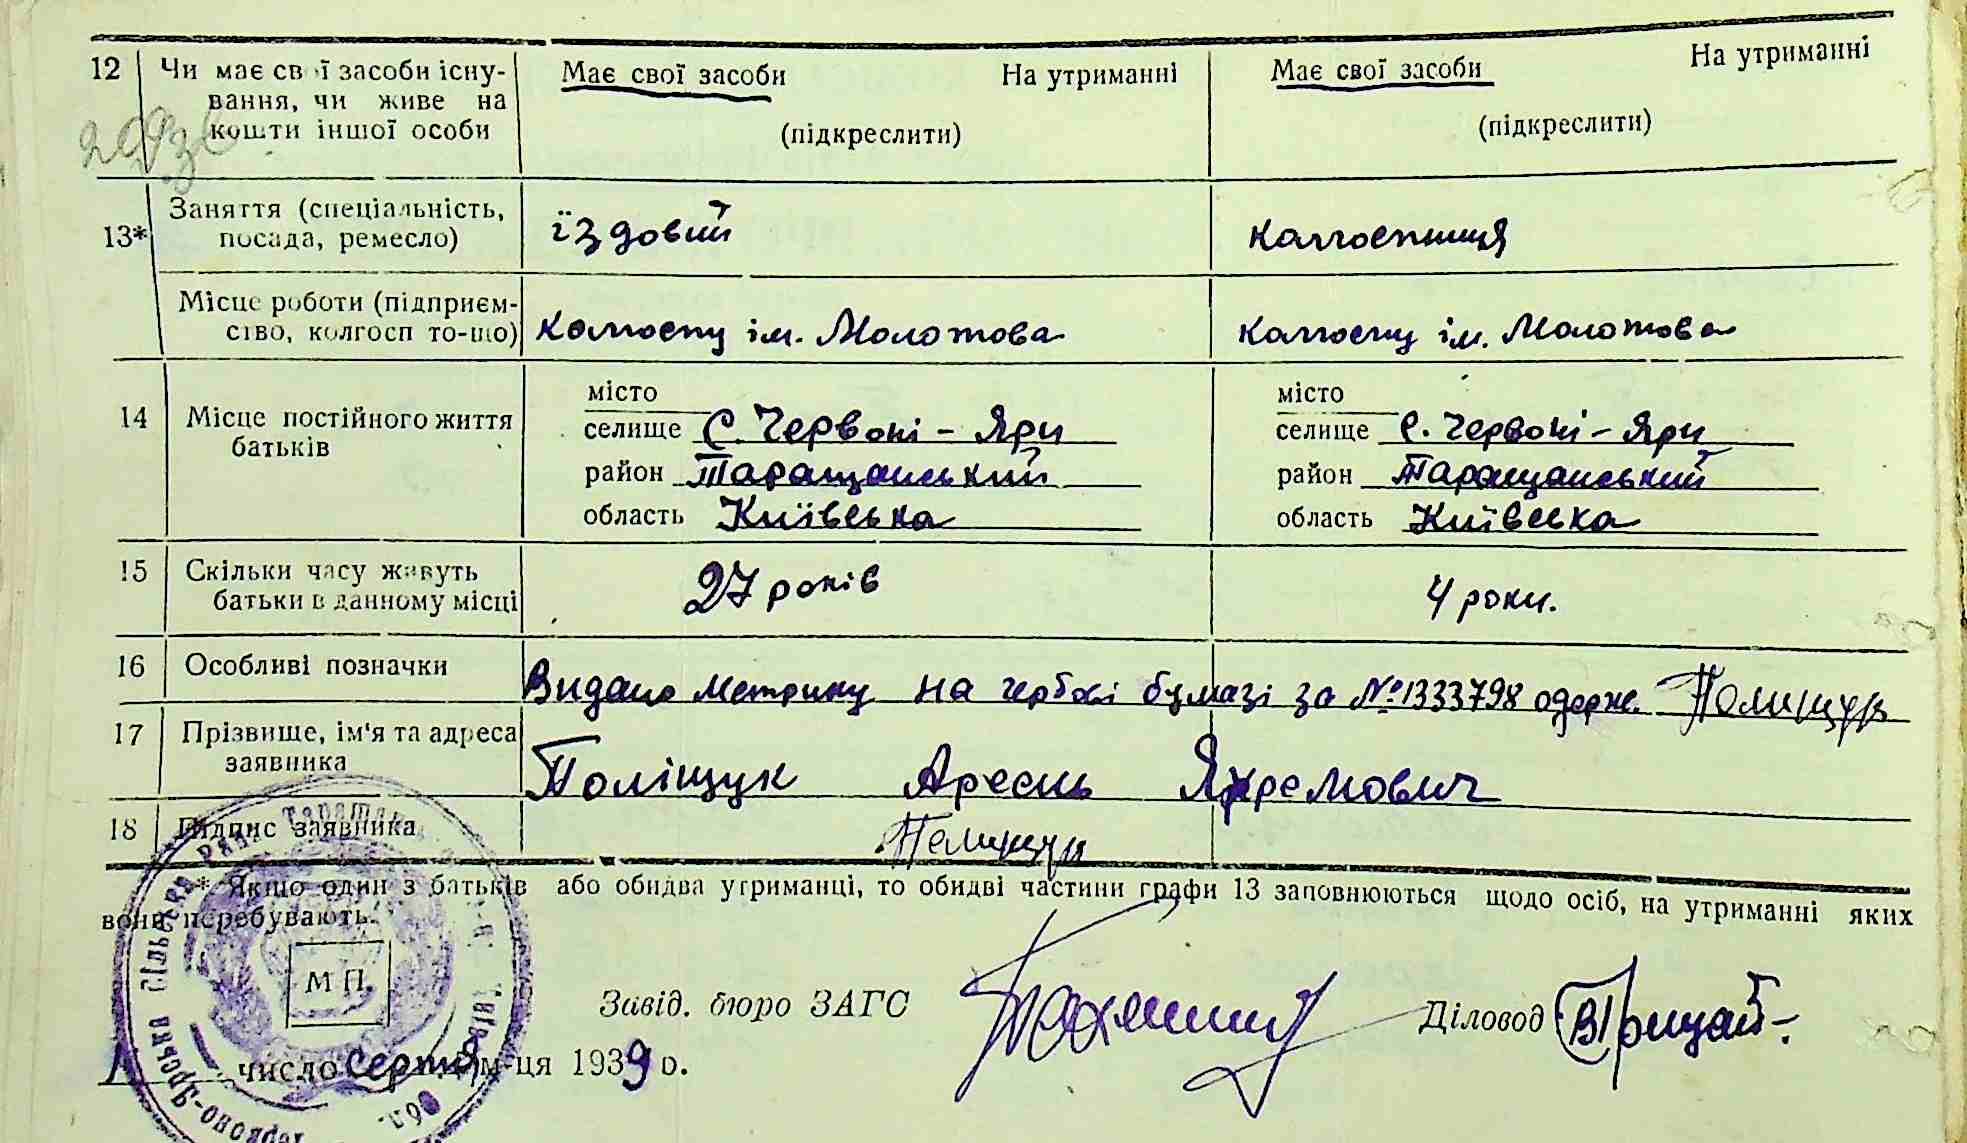 12 Чи має свої засоби існу-
вання, чи живе на
кошти іншої особи
Має свої засоби На утриманні
(підкреслити)
Має свої засоби На утриманні
(підкреслити)
13* Заняття (спеціальність,
посада, ремесло)
їздовий
колгоспниця
Місце роботи (підприєм-
ство, колгосп то-що)
колгоспу ім. Молотова
колгоспу ім. Молотова
14 Місце постійного життя
батьків
місто
селище С. Червоні-Яри
район Таращанський
область Київська
місто
селище С. Червоні-Яри
район Таращанський
область Київська
15 Скільки часу живуть
батьки в данному місці
27 років
4 роки.
16 Особливі позначки
Видано метрику на гербові бумазі за №1333798 одерж. Полищук
17 Прізвище, ім'я та адреса
заявника
Поліщук Арсень Яхремович
18 Підпис заявника
Полищук
* Якщо один з батьків або обидва утриманці, то обидві частини графи 13 заповнюються щодо осіб, на утриманні яких
вони перебувають.
М П.
Завід. бюро ЗАГС
Діловод
1 число Серпня м-ця 1939 р.